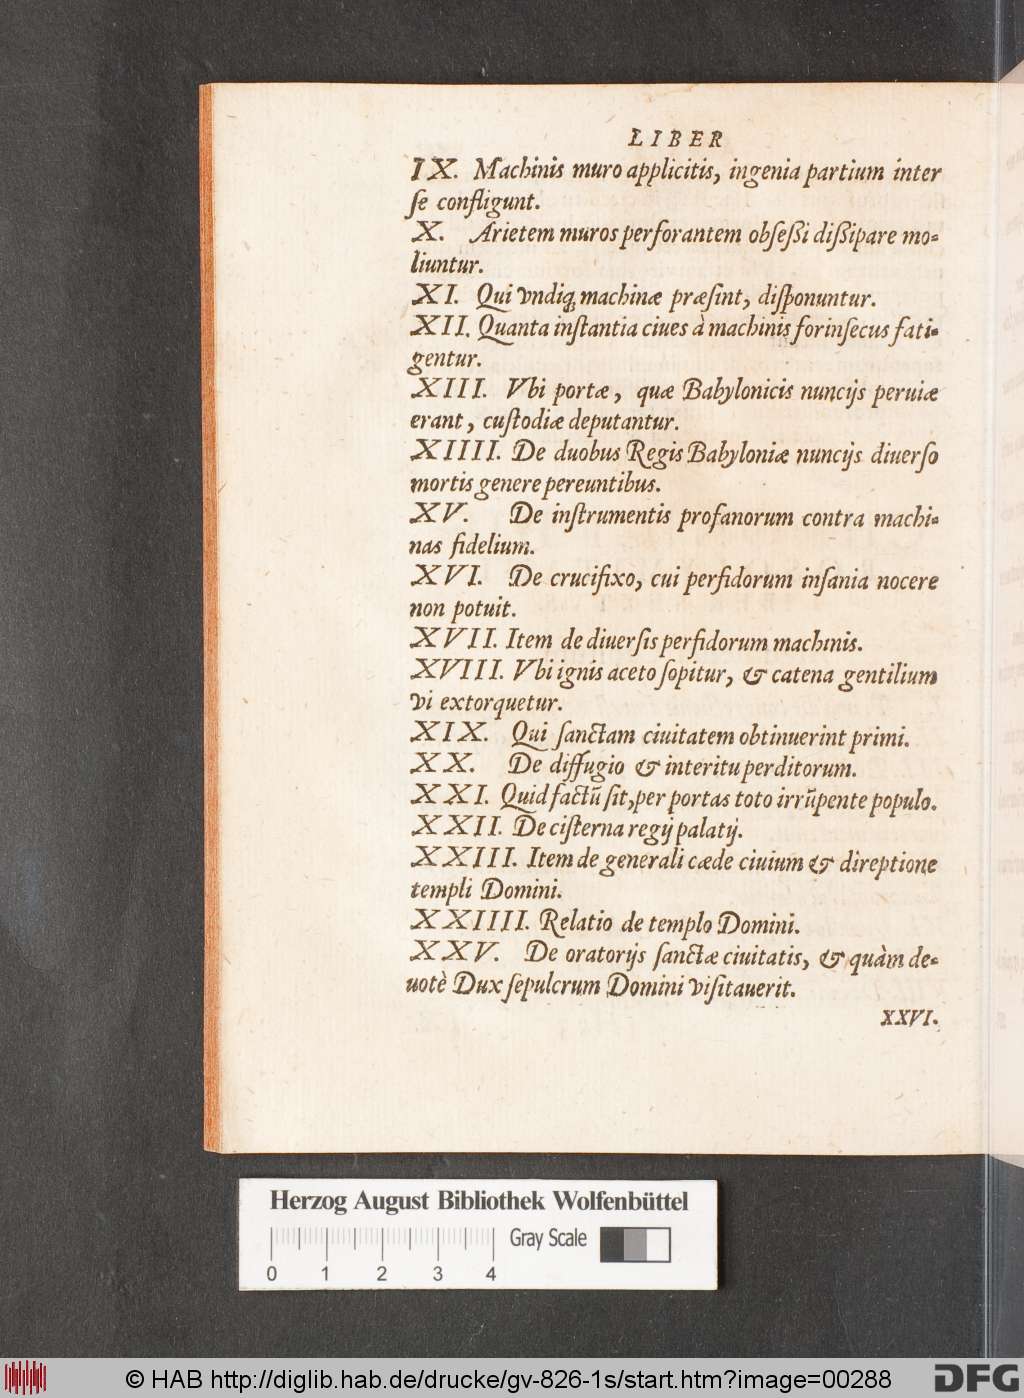 LIBER
IX. Machinis muro applicitis, ingenia partium inter
ſe confligunt.
X. Arietem muros perforantem obſeßi dißipare mo-
liuntur.
XI. Qui vndiq; machinæ præſint, diſponuntur.
XII. Quanta inſtantia ciues à machinis forinſecus fati-
gentur.
XIII. Vbi portæ, quæ Babylonicis nuncijs peruiæ
erant, cuſtodiæ deputantur.
XIIII. De duobus Regis Babyloniæ nuncijs diuerſo
mortis genere pereuntibus.
XV. De inſtrumentis profanorum contra machi-
nas fidelium.
XVI. De crucifixo, cui perfidorum inſania nocere
non potuit.
XVII. Item de diuerſis perfidorum machinis.
XVIII. Vbi ignis aceto ſopitur, & catena gentilium
vi extorquetur.
XIX. Qui ſanctam ciuitatem obtinuerint primi.
XX. De diffugio & interitu perditorum.
XXI. Quid factũ ſit, per portas toto irrũpente populo.
XXII. De ciſterna regij palatij.
XXIII. Item de generali cæde ciuium & direptione
templi Domini.
XXIIII. Relatio de templo Domini.
XXV. De oratorijs ſanctæ ciuitatis, & quàm de-
uotè Dux ſepulcrum Domini viſitauerit.
XXVI.
Herzog August Bibliothek Wolfenbüttel
Gray Scale
0 1 2 3 4
© HAB http://diglib.hab.de/drucke/gv-826-1s/start.htm?image=00288
DFG